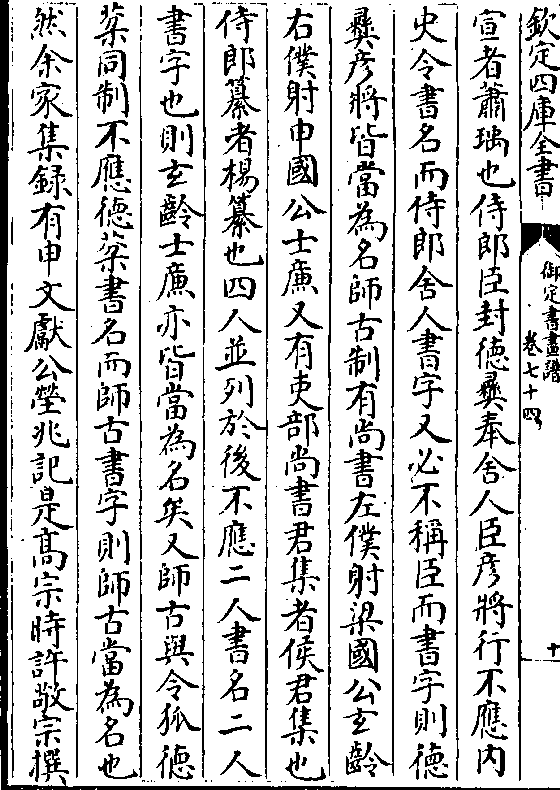 欽定四庫全書
御定書畫譜
卷七十四
十
宣者蕭瑀也侍郎臣封德彝奉舍人臣彥將行不應内
史令書名而侍郎舍人書字又必不稱臣而書字則德
彝彥將皆當為名師古制有尚書左僕射梁國公玄齡
右僕射申國公士廉又有吏部尚書君集者侯君集也
侍郎纂者楊纂也四人並列於後不應二人書名二人
書字也則玄齡士廉亦皆當為名矣又師古與令狐德
棻同制不應德棻書名而師古書字則師古當為名也
然余家集録有申文獻公塋兆記是髙宗時許敬宗撰